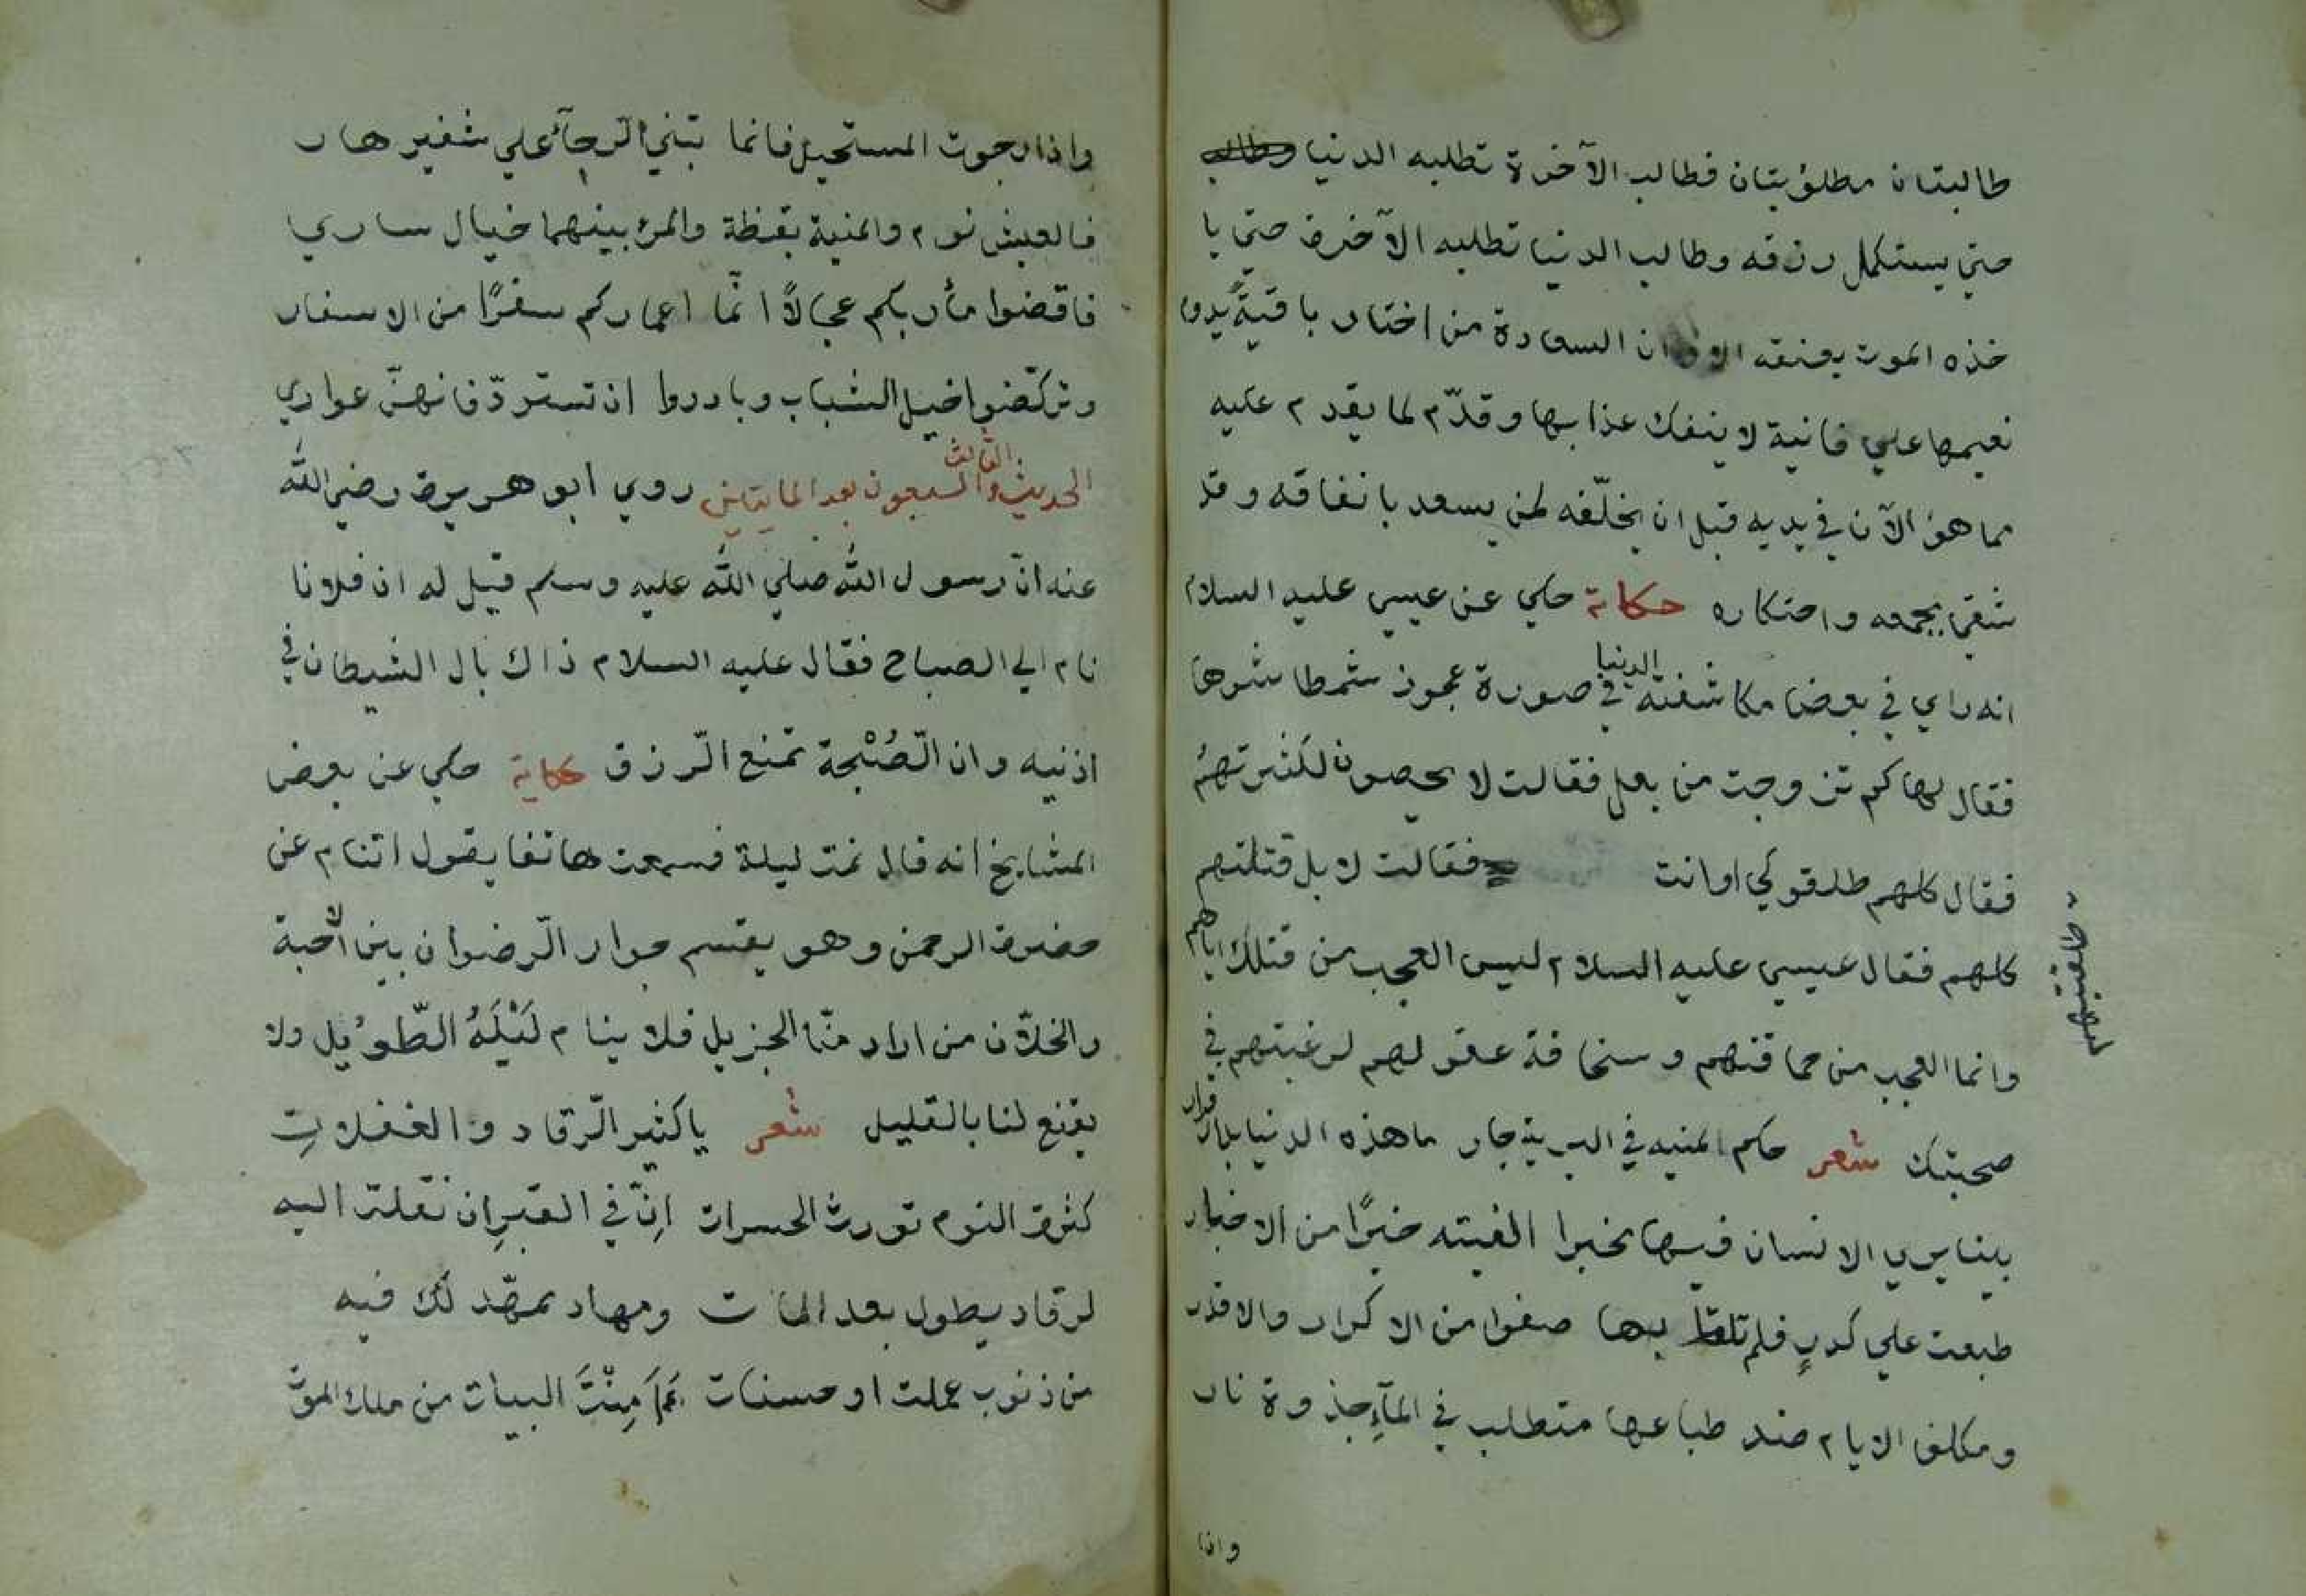 طالبتان مطلوبتان فطالب الآخرة تطلبه الدنيا وطالب
حتي يستكمل رزقه وطالب الدنيا تطلبه الآخرة حتي يا
خذه الموت بعنقه الا وان السعادة من اختار باقيةً يدوم
نعيمها علي فانية لا ينفك عذابها وقدّم لما يقدم عليه
مما هو الآن في يديه قبل ان يخلّفه لمن يسعد بانفاقه وقد
شقي بجمعه واحتكاره حكاية حكي عن عيسي عليه السلام
انه راي في بعض مكاشفته الدنيا في صورة عجوز شمطا شوها
فقال لها كم تزوجت من بعل فقالت لا يحصون لكثرتهمُ
فقال كلهم طلقوكي او انت فقالت لا بل قتلتهم
طلقتيهم
كلهم فقال عيسي عليه السلام ليس العجب من قتلك اياهم
وانما العجب من حماقتهم وسخافة عقولهم لرغبتهم في
صحبتك شعر حكم المنيه في البرية جار ما هذه الدنيا بدار قرار
بينا يري الانسان فيها مخبرا الفيته خبرًا من الاخبار
طبعت علي كدرٍ فلم تلقا بها صفوا من الاكرار والاقدر
ومكلف الايام ضد طباعها متطلب في المآءِ جذوة نار
واذا
واذا رجوت المستحيل فانما تبني الرجآء علي شفير هار
فالعيش نوم والمنية يقظة والمرء بينهما خيال ساري
فاقضوا مأربكم عجالاً انّما اعماركم سفرًا من الاسفار
وتركّضوا خيل الشباب وبادروا ان تسترد فانهنّ عواري
الحديث الثالث والسبعون بعد المايتين روي ابو هريرة رضي الله
عنه انّ رسول الله صلي الله عليه وسلم قيل له ان فلانا
نام الي الصباح فقال عليه السلام ذاك بال الشيطان في
اذنيه وان الصُبْحة تمنع الرزق حكاية حكي عن بعض
المشايخ انه قال نمت ليلة فسمعت هاتفا يقول اتنام عن
حضرة الرحمن وهو يقسم جوار الرضوان بين الاحبة
والخلان من اراد منّا الجزيل فلا ينام لَيْلَهُ الطّوِيل ولا
يقنع لنا بالقليل شعر يا كثير الرّقاد والغفلاتِ
كثرة النوم تورث الحسرات اِنّ في القبرِ ان نقلت اليه
لرقاد يطول بعد المات ومهاد تمهّد لك فيه
من ذنوب عملت او حسنات البيات من ملك الموت